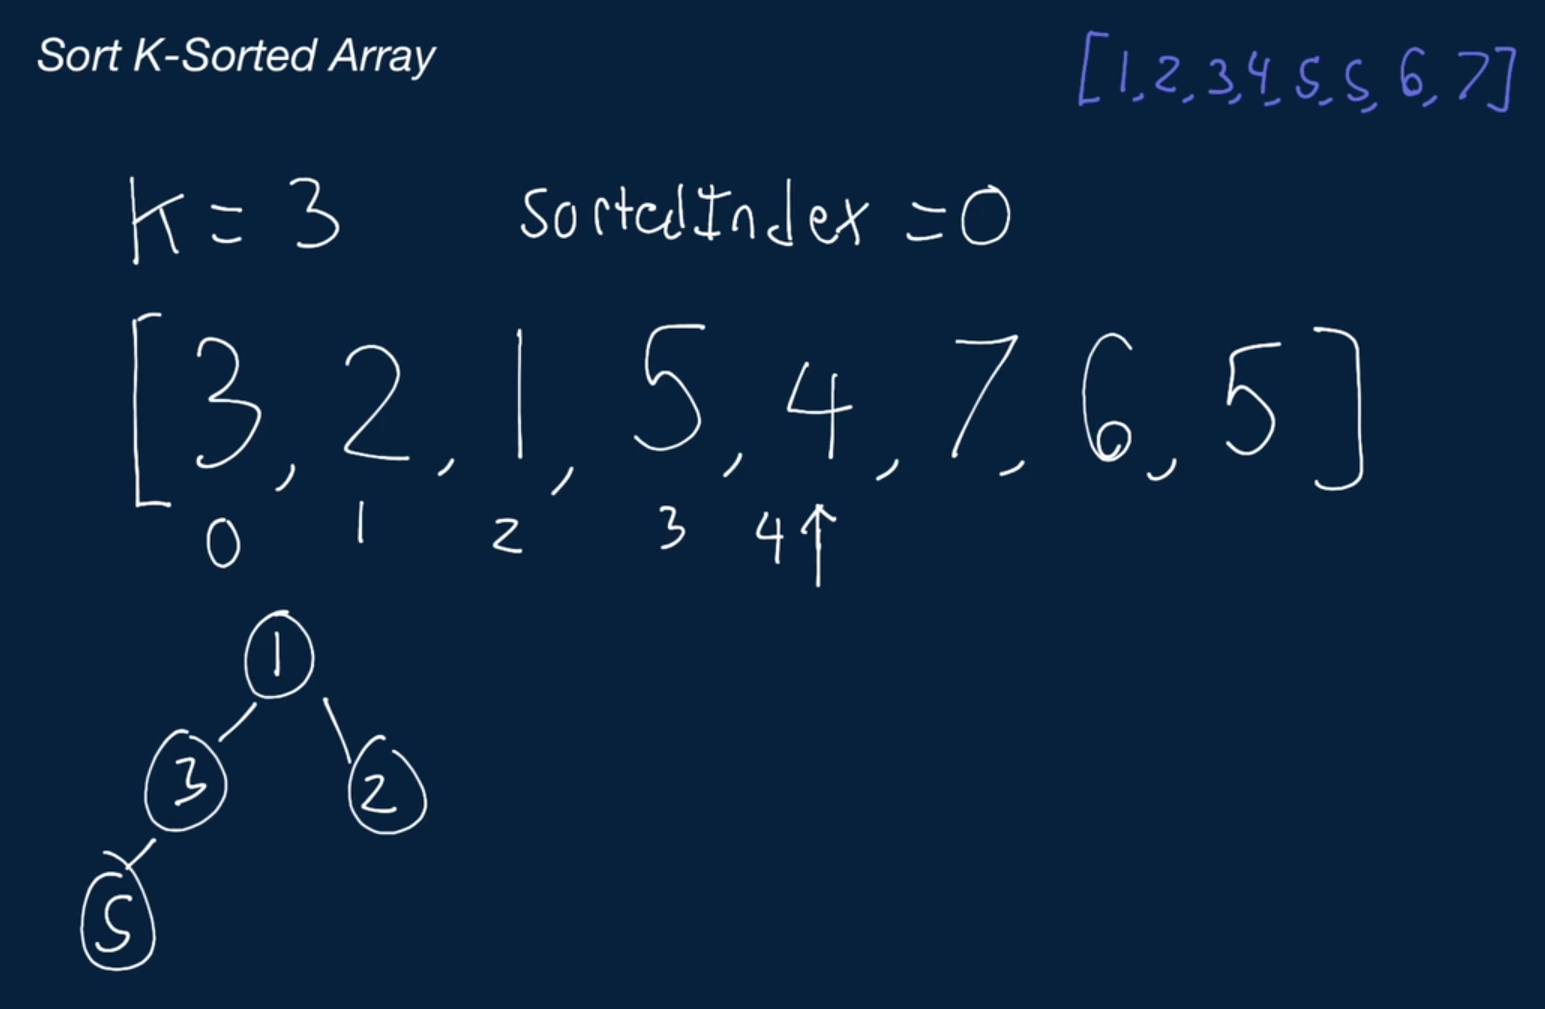 Sort K-Sorted Array
[1,2,3,4,5,5,6,7]
K=3 sortedIndex=0
[3,2,1,5,4,7,6,5]
0 1 2 3 4↑
1
3 2
5